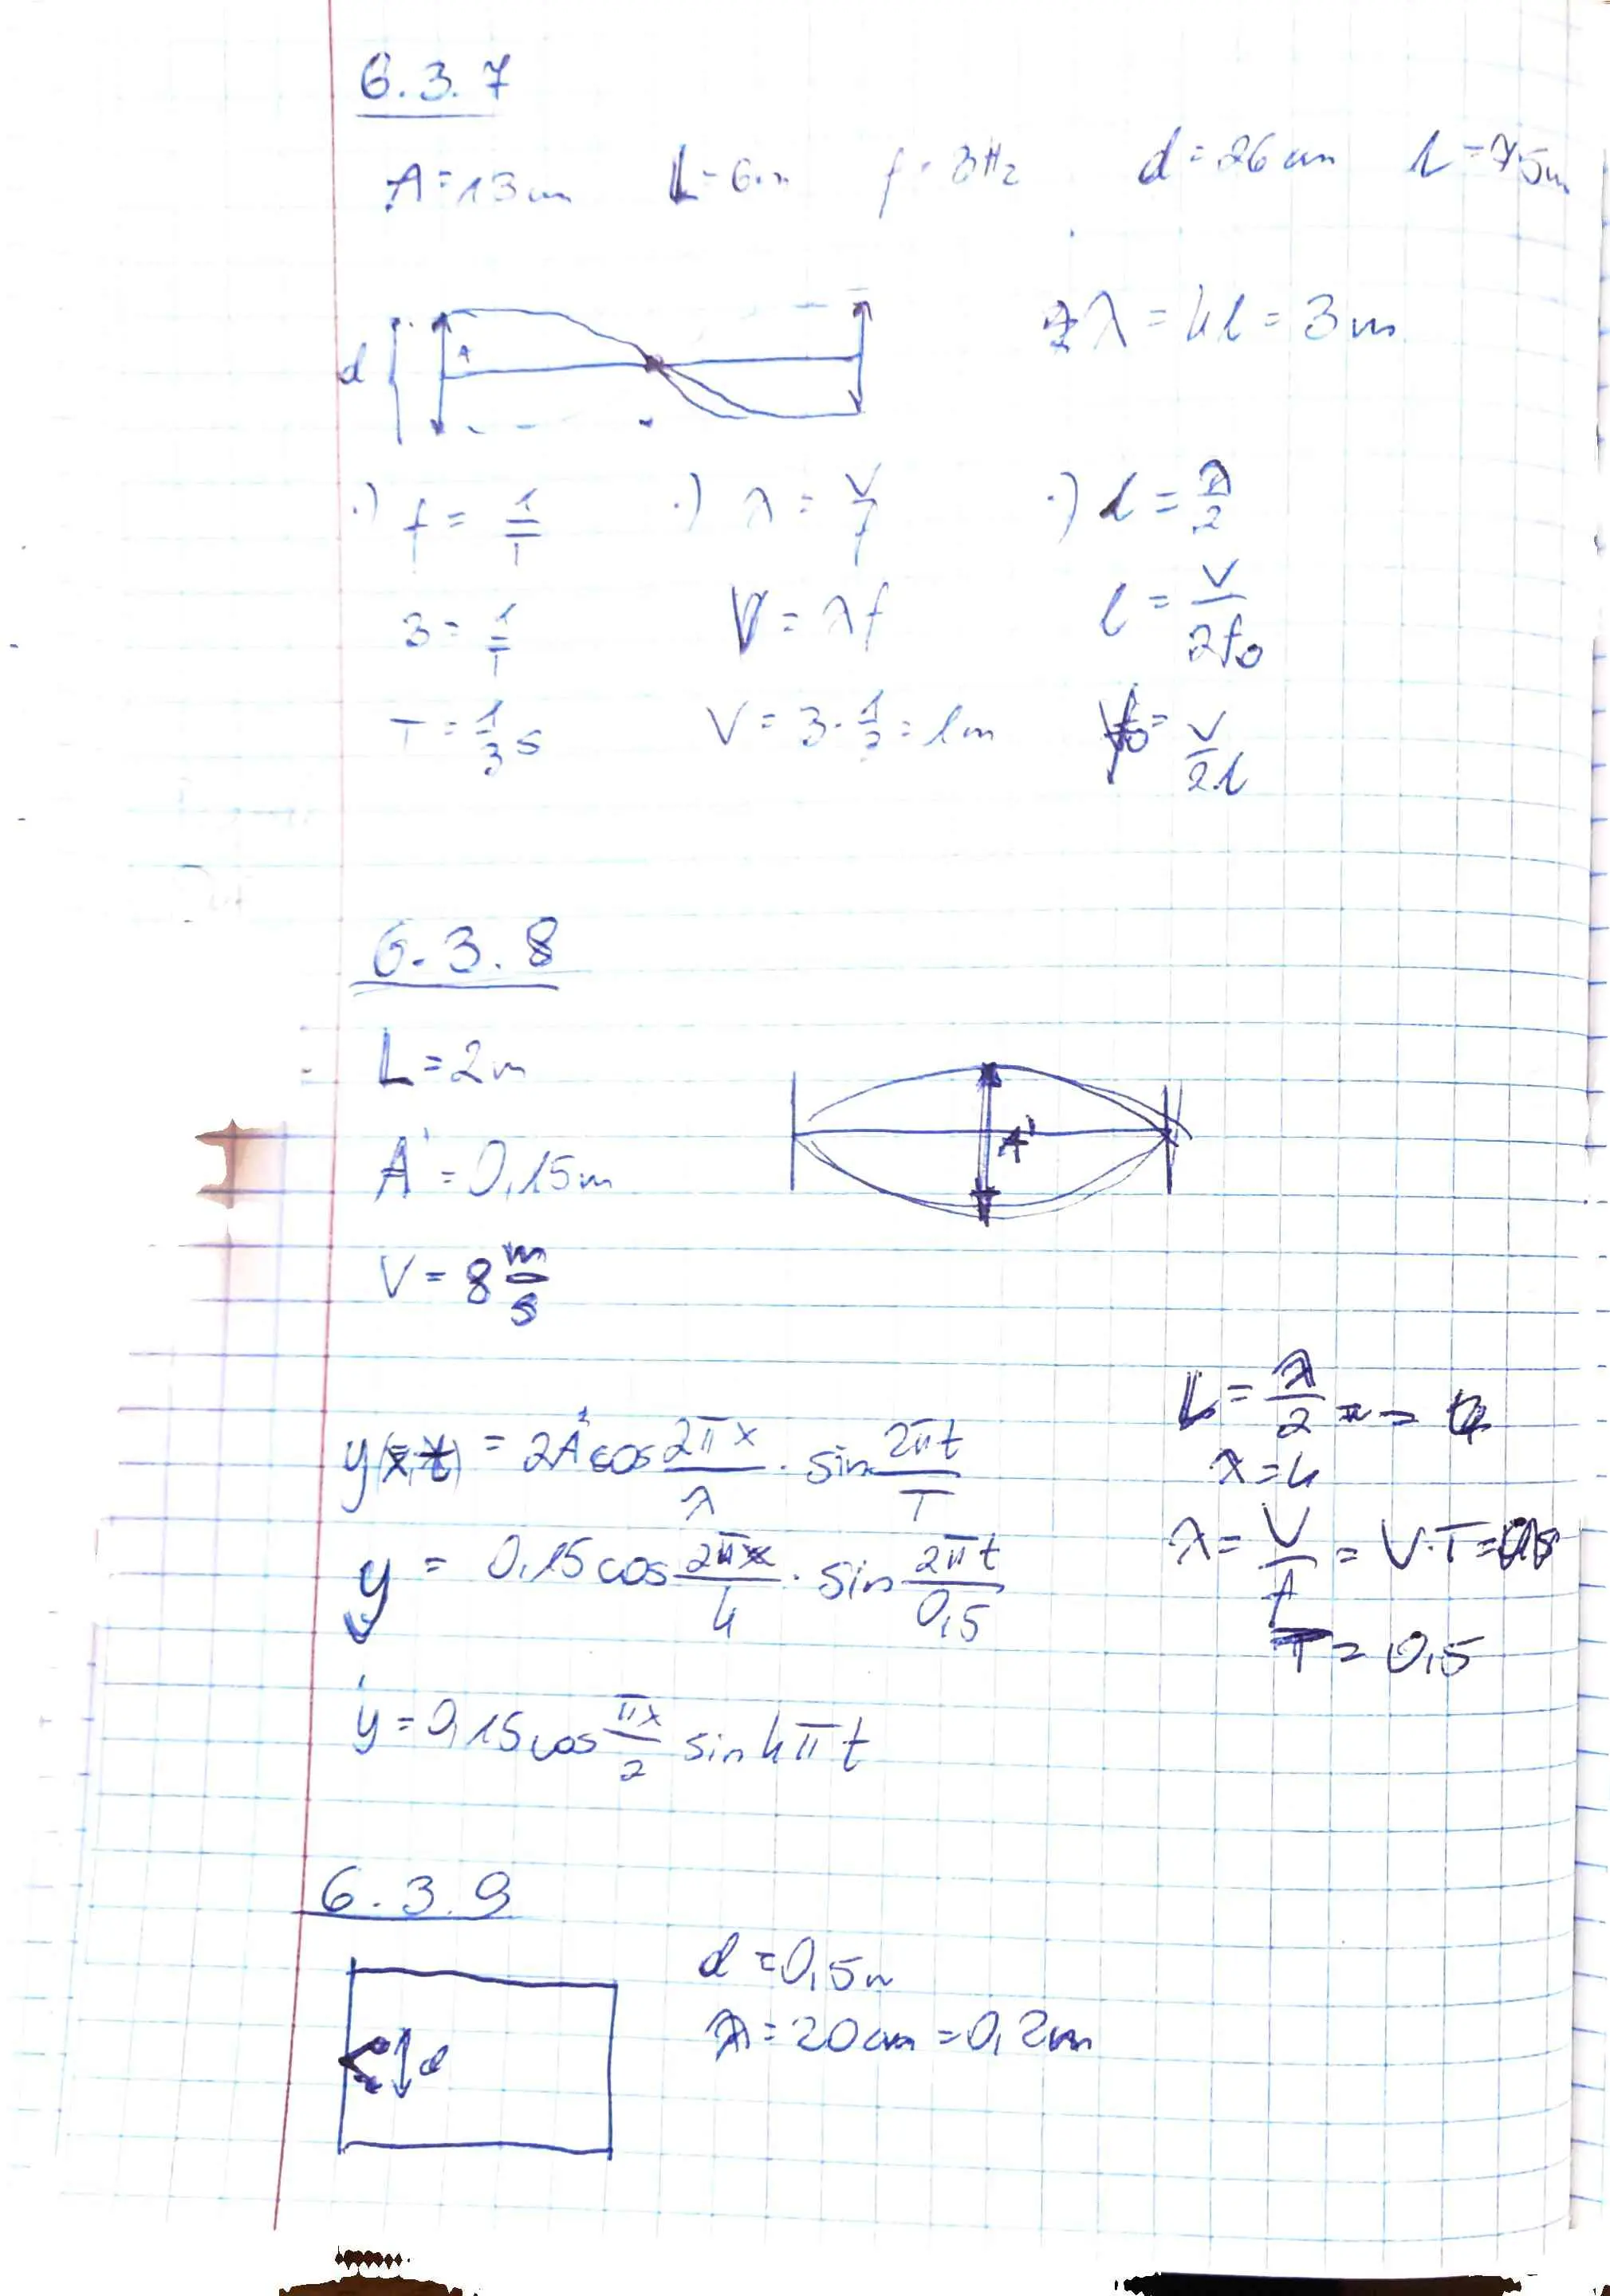 6.3.7
A = 13cm L = 6m f = 3Hz d = 26cm l = 75m
d A λ = 4l = 3m
·) f = 1/T ·) λ = V/f ·) l = λ/2
3 = 1/T V = λf l = V/2f₀
T = 1/3 s V = 3 · 1/3 = 1m f₀ = V/2l
6.3.8
L = 2m
A' = 0,15m A'
V = 8 m/s
L = λ/2
y(x,t) = 2A' cos 2πx/λ · sin 2πt/T λ = 4
y = 0,15 cos 2πx/4 · sin 2πt/0,5 λ = V/f = V·T =
T = 0,5
y = 0,15 cos πx/2 sin 4πt
6.3.9
d = 0,5m
d λ = 20cm = 0,2m